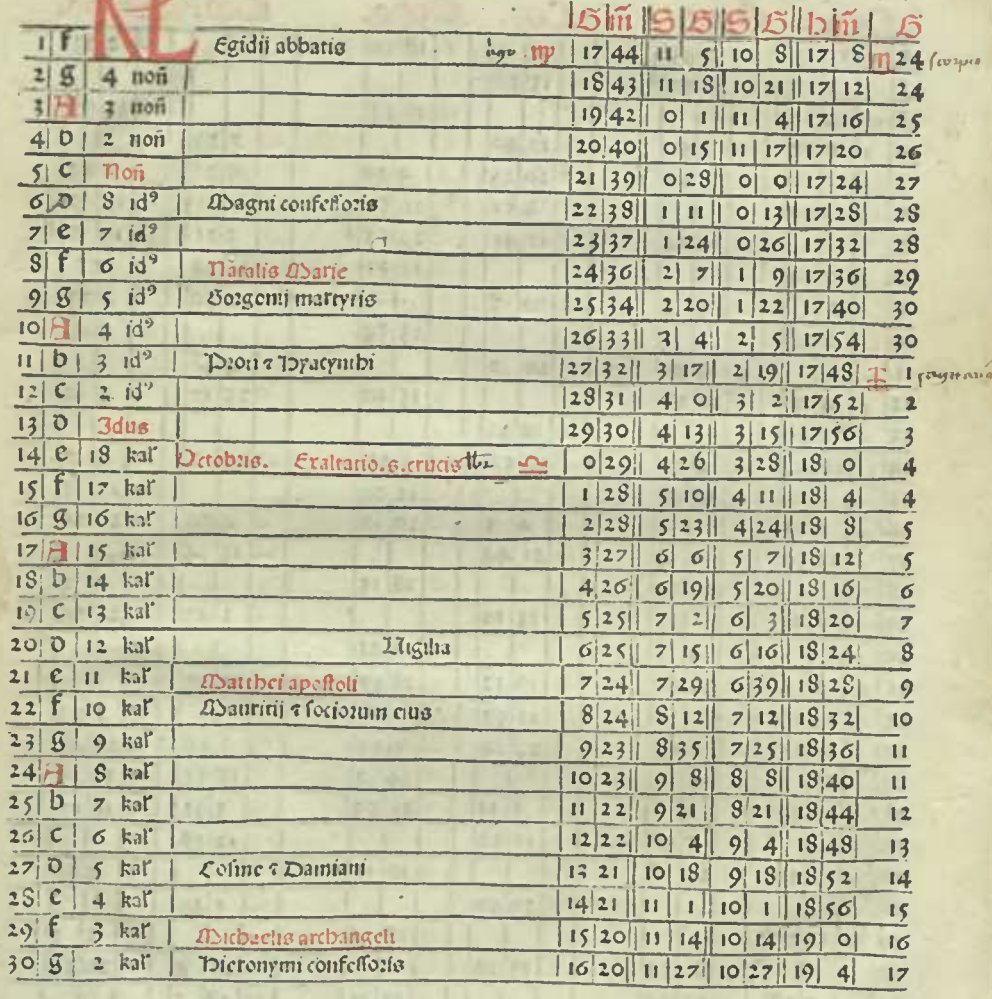 KL G m̄ S G S G h m̄ G
1 f Egidij abbatis virgo ♍ 17 44 11 5 10 8 17 8 ♏ 24 scorpio
2 g 4 noñ 18 43 11 18 10 21 17 12 24
3 A 3 noñ 19 42 0 1 11 4 17 16 25
4 b 2 noñ 20 40 0 15 11 17 17 20 26
5 c Noñ 21 39 0 28 0 0 17 24 27
6 d 8 idꝰ Magni confessoris 22 38 1 11 0 13 17 28 28
7 e 7 idꝰ 23 37 1 24 0 26 17 32 28
8 f 6 idꝰ Natalis Marie 24 36 2 7 1 9 17 36 29
9 g 5 idꝰ Gorgonij martyris 25 34 2 20 1 22 17 40 30
10 A 4 idꝰ 26 33 3 4 2 5 17 54 30
11 b 3 idꝰ Proti ⁊ Hyacynthi 27 32 3 17 2 19 17 48 ♐ 1 sagittarius
12 c 2 idꝰ 28 31 4 0 3 2 17 52 2
13 d Idus 29 30 4 13 3 15 17 56 3
14 e 18 kal Octobris. Exaltatio.s.crucis ♎ 0 29 4 26 3 28 18 0 4
15 f 17 kal 1 28 5 10 4 11 18 4 4
16 g 16 kal 2 28 5 23 4 24 18 8 5
17 A 15 kal 3 27 6 6 5 7 18 12 5
18 b 14 kal 4 26 6 19 5 20 18 16 6
19 c 13 kal 5 25 7 2 6 3 18 20 7
20 d 12 kal Vigilia 6 25 7 15 6 16 18 24 8
21 e 11 kal Matthei apostoli 7 24 7 29 6 39 18 28 9
22 f 10 kal Mauritij ⁊ sociorum eius 8 24 8 12 7 12 18 32 10
23 g 9 kal 9 23 8 35 7 25 18 36 11
24 A 8 kal 10 23 9 8 8 8 18 40 11
25 b 7 kal 11 22 9 21 8 21 18 44 12
26 c 6 kal 12 22 10 4 9 4 18 48 13
27 d 5 kal Cosme ⁊ Damiani 13 21 10 18 9 18 18 52 14
28 e 4 kal 14 21 11 1 10 1 18 56 15
29 f 3 kal Michaelis archangeli 15 20 11 14 10 14 19 0 16
30 g 2 kal Hieronymi confessoris 16 20 11 27 10 27 19 4 17